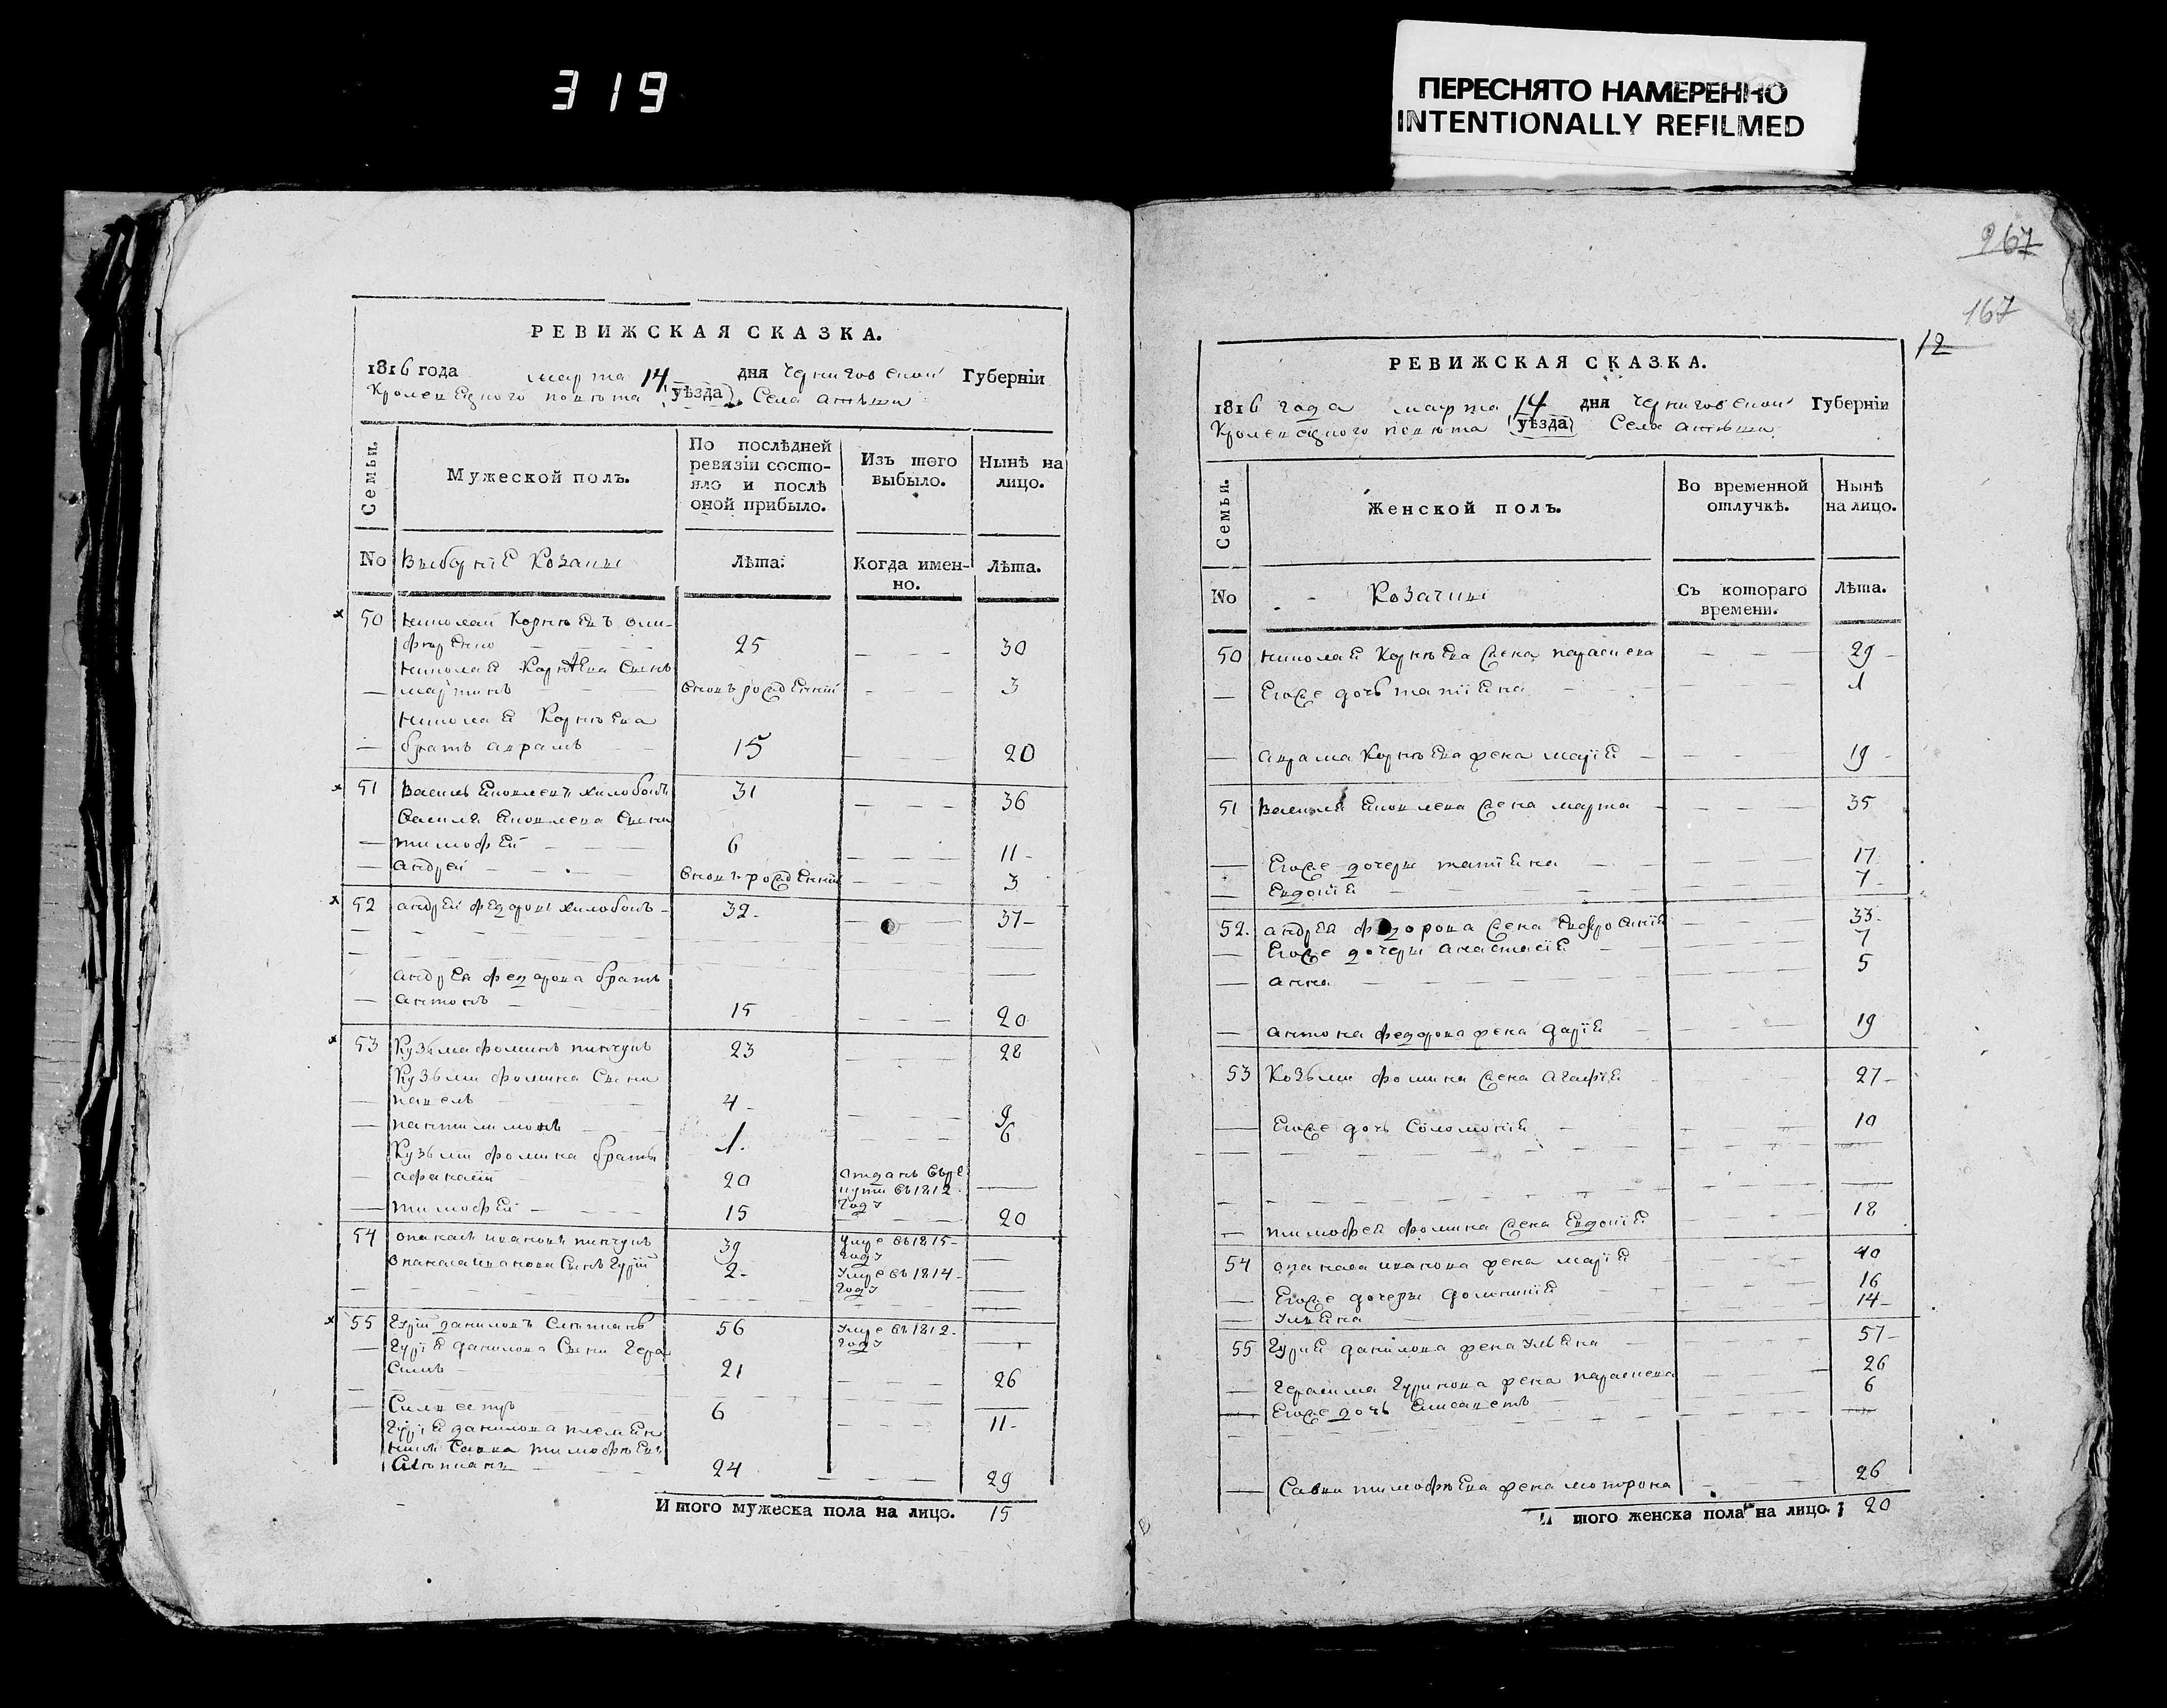 319
ПЕРЕСНЯТО НАМЕРЕННО
INTENTIONALLY REFILMED
267
167
12
РЕВИЖСКАЯ СКАЗКА.
1816 года марта 14 дня Черниговской Губерніи
Кролевецкого повѣта уѣзда Села
Семьи.
Мужеской полъ.
По послѣдней ревизіи состояло и послѣ оной прибыло.
Изъ того выбыло.
Нынѣ на лицо.
No Виборніе Козаки
Лѣта.
Когда именно.
Лѣта.
50 Николай Корнѣевъ Оли-
фѣренко 25 30
Николая Корнѣева синъ
мартинъ вновъ рожденній 3
Николая Корнѣева
братъ аврамъ 15 20
51 Василь Яковлевъ хилобокъ 31 36
Василя Яковлева сини
тимофѣй 6 11
андрей вновъ рожденній 3
52 андрей федоровъ хилобокъ 32 37
андрея федорова братъ
антонъ 15 20
53 Кузьма фоминъ пинчукъ 23 28
Кузьми фомина сини
павелъ 4 9
пантилимонъ 1 6
Кузьми фомина брати
афанасій 20 отданъ въ ре
крути въ 1812
году
тимофѣй 15 20
54 опанасъ ивановъ пинчукъ 39 умре въ 1815
году
опанаса иванова синъ Гурій 2 умре въ 1814
году
55 Гурій даниловъ 56 умре въ 1812
году
Гурія данилова сини Гера
симъ 21 26
Силвестръ 6 11
Гурія данилова племян
никъ Савка тимофѣевъ
24 29
Итого мужеска пола на лицо. 15
РЕВИЖСКАЯ СКАЗКА.
1816 года марта 14 дня Черниговской Губерніи
Кролевецкого повѣта уѣзда Села
Семьи.
Женской полъ.
Во временной отлучкѣ.
Нынѣ на лицо.
No Козачки
Съ котораго времени.
Лѣта.
50 Николая Корнѣева жена параскева 29
Егоже дочь татіяна 1
аврама Корнѣева жена марія 19
51 Василя Яковлева жена марта 35
Егоже дочери татіяна 17
Евдокія 7
52. андрея федорова жена Евфросинія 33
Егоже дочери анастасія 7
анна 5
антона федорова жена дарія 19
53 Козьми фомина жена агафія 27
Егоже дочь Соломонія 10
тимофея фомина жена Евдокія 18
54 опанаса иванова жена марія 40
Егоже дочери домникія 16
Улияна 14
55 Гурия данилова жена Ульяна 57
Герасима Гуринова жена параскева 26
Егоже дочь Елисаветъ 6
Савки тимофѣева жена мотрона 26
Итого женска пола на лицо. 20